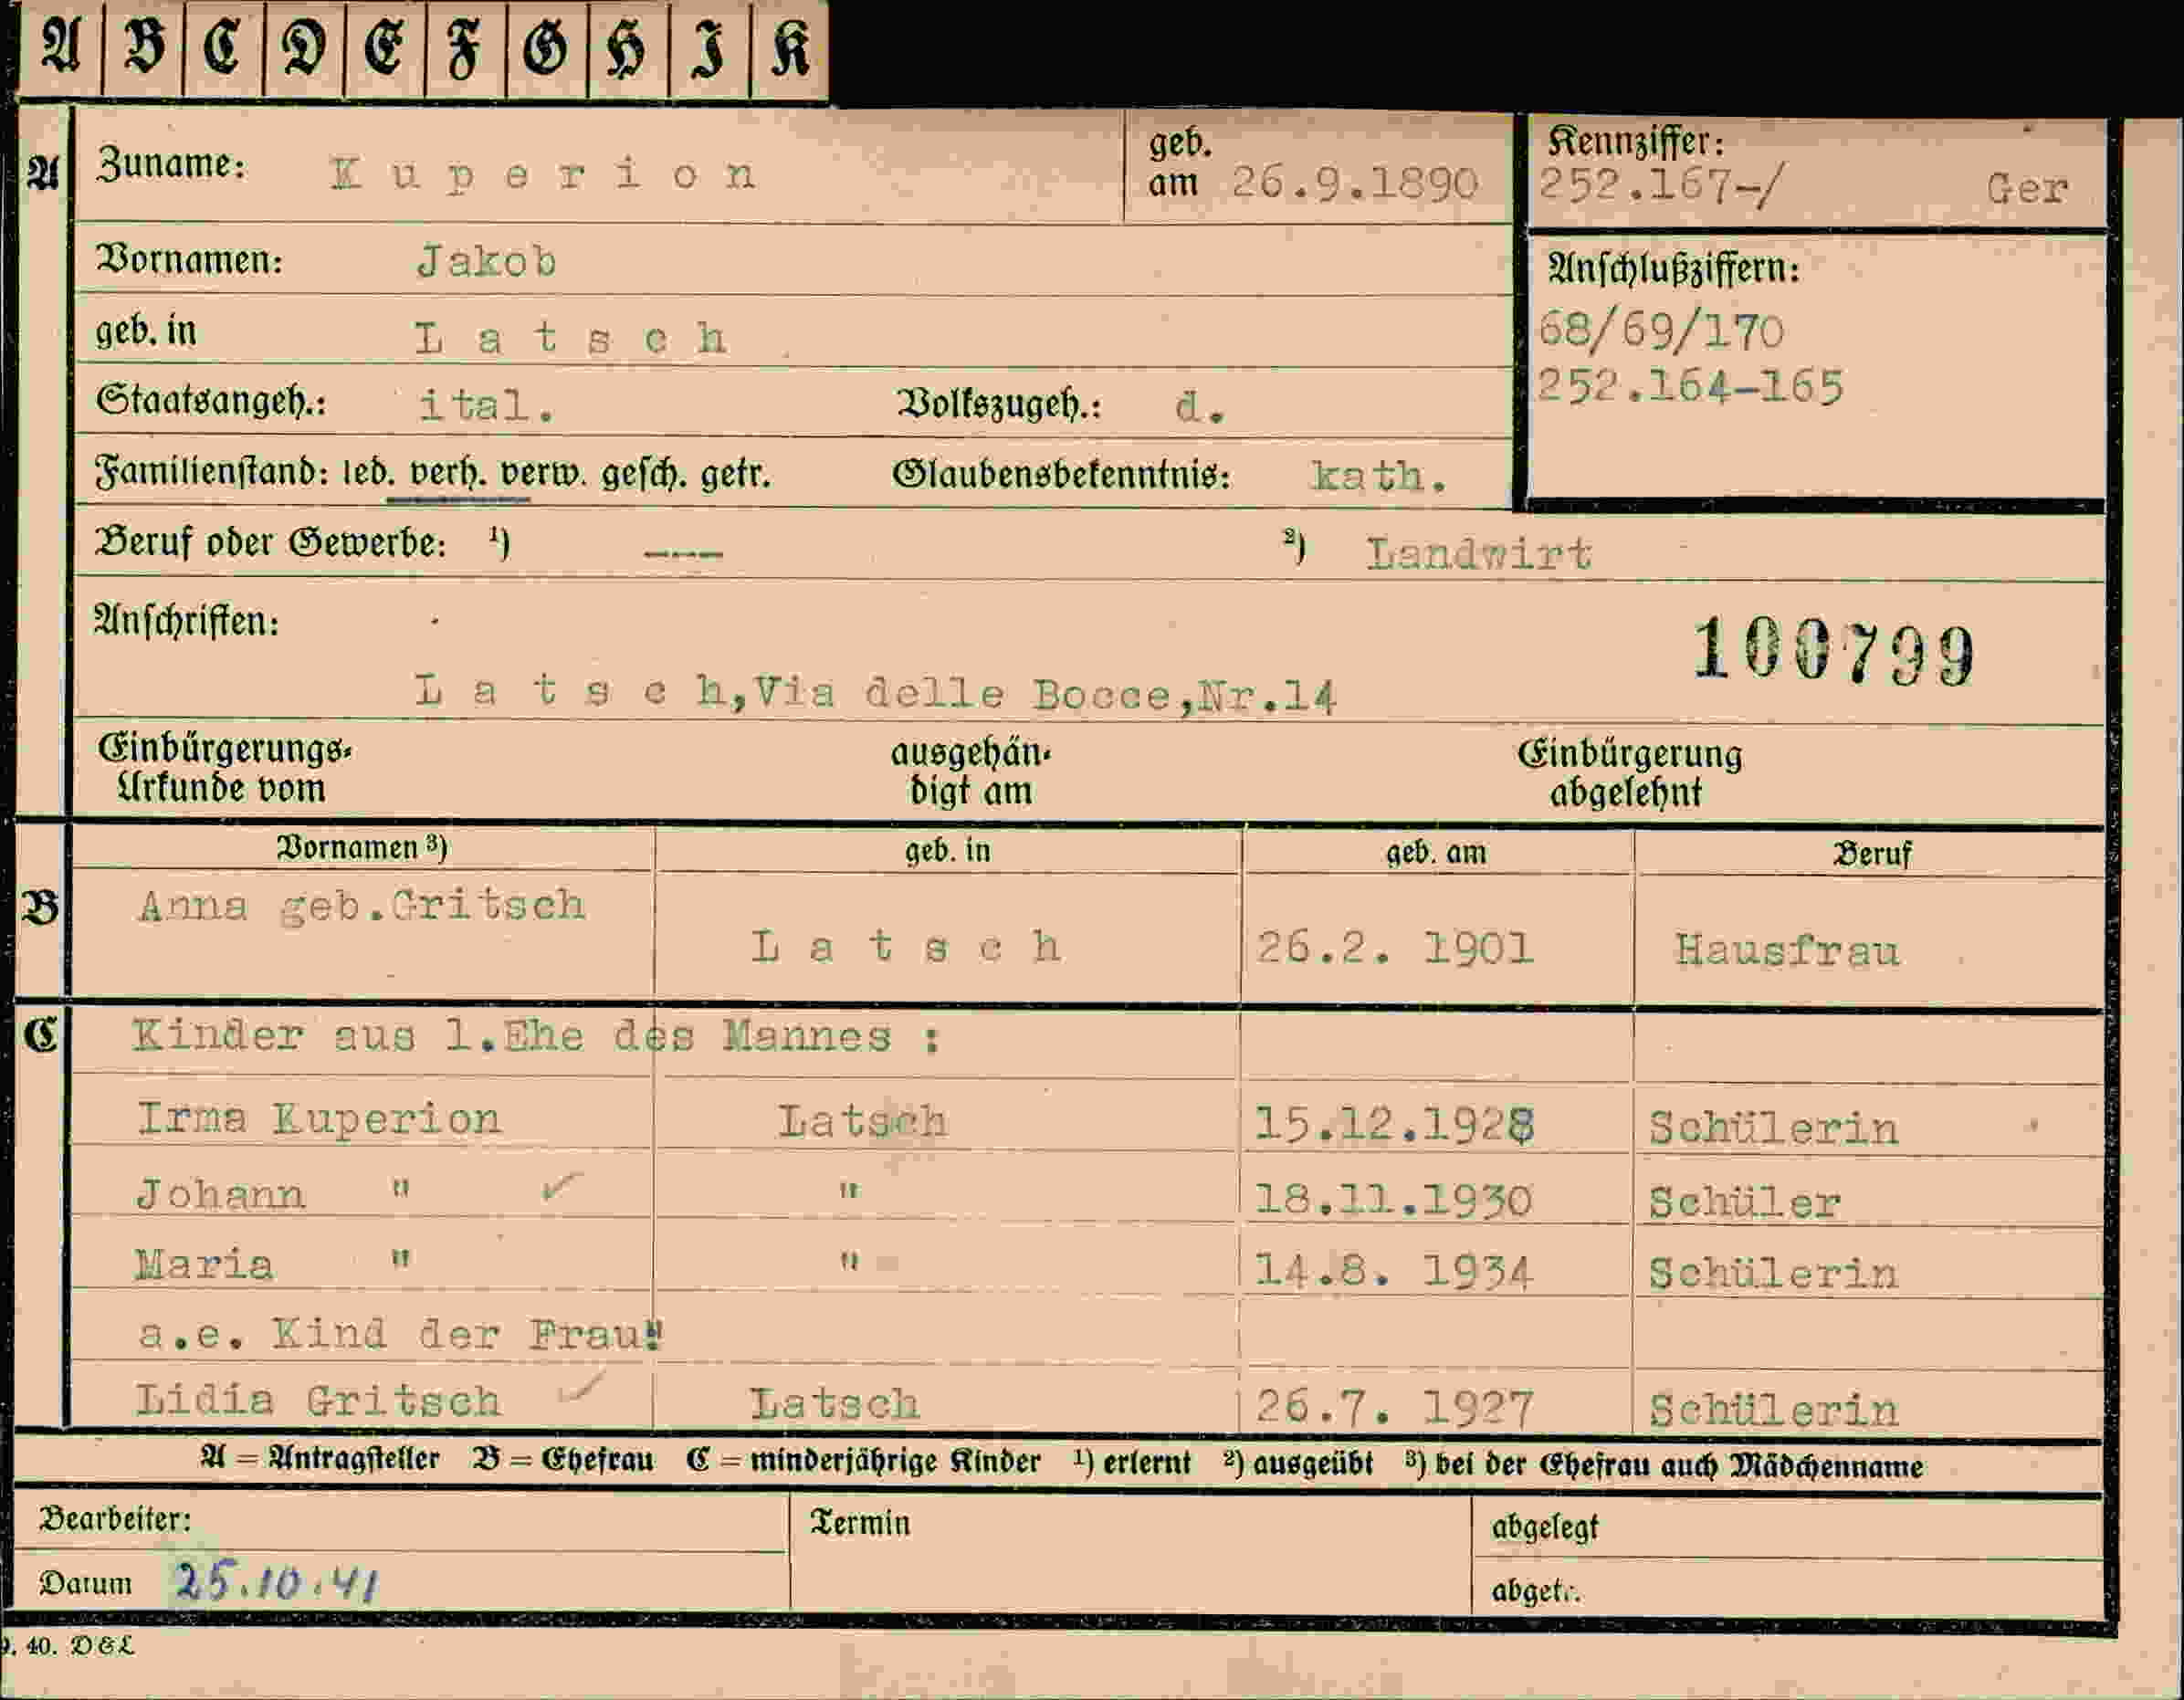 A B C D E F G H I K
A Zuname: Kuperion geb. am 26.9.1890 Kennziffer: 252.167-/ Ger
Vornamen: Jakob Anschlußziffern:
geb. in Latsch 68/69/170
Staatsangeh.: ital. Volkszugeh.: d. 252.164-165
Familienstand: led. verh. verw. gesch. getr. Glaubensbekenntnis: kath.
Beruf oder Gewerbe: ¹) --- ²) Landwirt
Anschriften:
100799
Latsch,Via delle Bocce,Nr.14
Einbürgerungs- ausgehän- Einbürgerung
Urkunde vom digt am abgelehnt
Vornamen ³) geb. in geb. am Beruf
B Anna geb.Gritsch
Latsch 26.2. 1901 Hausfrau
C Kinder aus 1.Ehe des Mannes :
Irma Kuperion Latsch 15.12.1928 Schülerin
Johann " ✓ " 18.11.1930 Schüler
Maria " " 14.8. 1934 Schülerin
a.e. Kind der Frau:
Lidia Gritsch ✓ Latsch 26.7. 1927 Schülerin
A = Antragsteller B = Ehefrau C = minderjährige Kinder ¹) erlernt ²) ausgeübt ³) bei der Ehefrau auch Mädchenname
Bearbeiter: Termin abgelegt
Datum 25.10.41 abgetr.
40. D&L